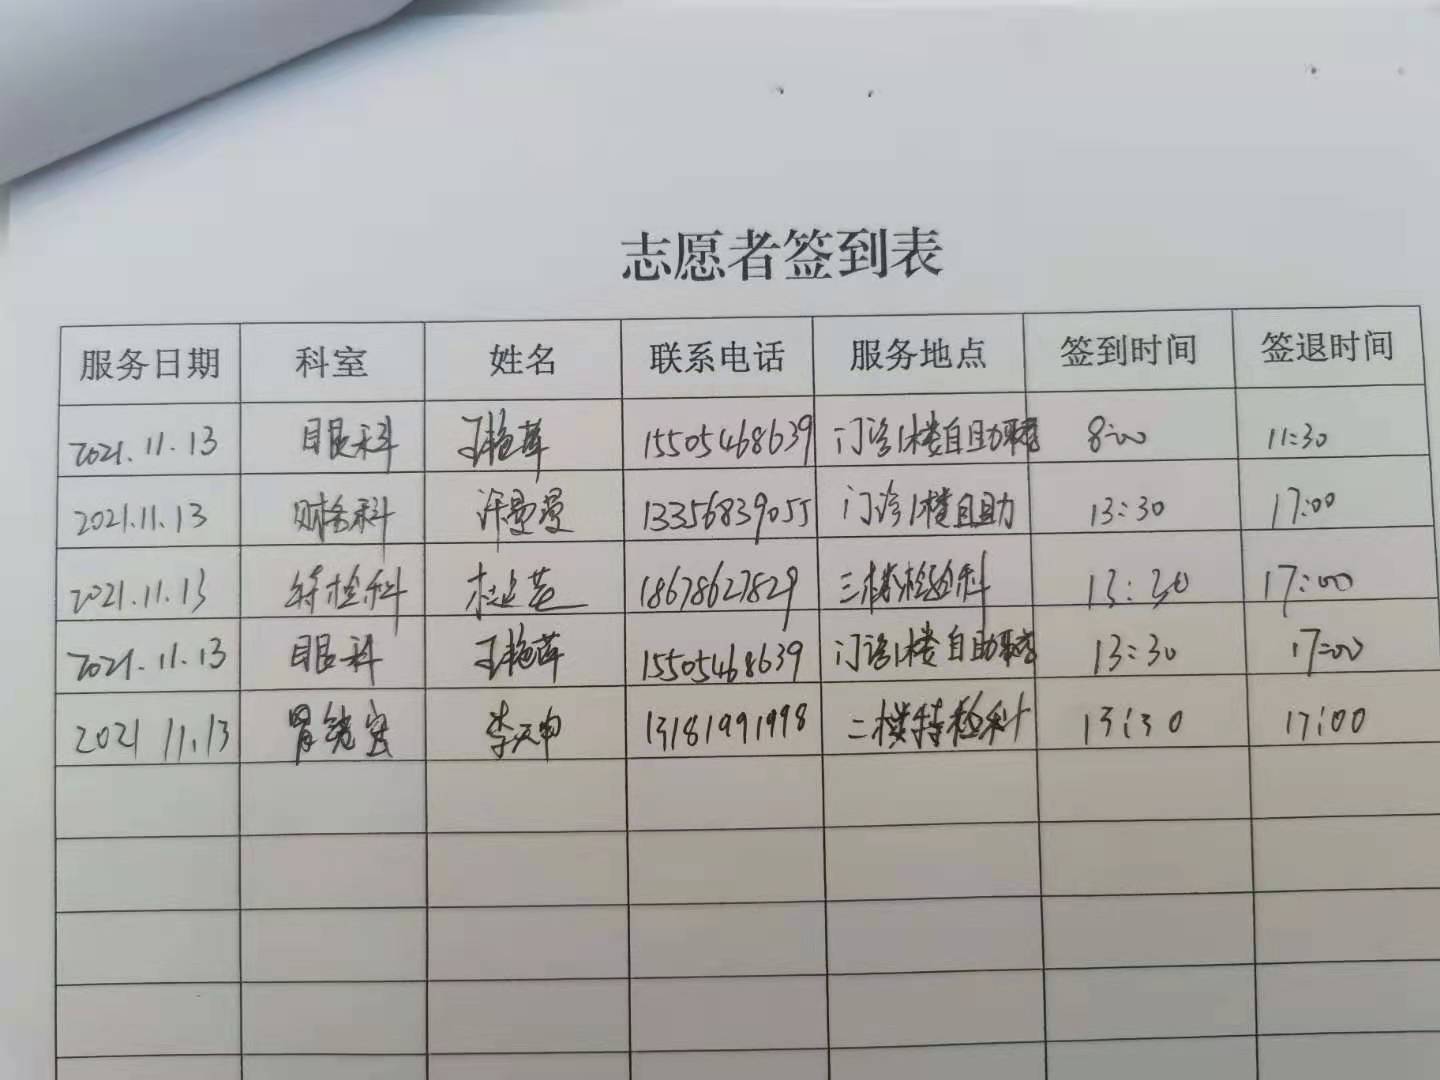 志愿者签到表
服务日期 科室 姓名 联系电话 服务地点 签到时间 签退时间
2021.11.13 眼科 王艳萍 15505468639 门诊1楼自助 8:00 11:30
2021.11.13 财务科 许曼曼 13356839055 门诊1楼自助 13:30 17:00
2021.11.13 特检科 18678627829 三楼检验科 13:30 17:00
2021.11.13 眼科 王艳萍 15505468639 门诊1楼自助 13:30 17:00
2021 11.13 胃镜室 李天申 13181991998 二楼特检科 13:30 17:00